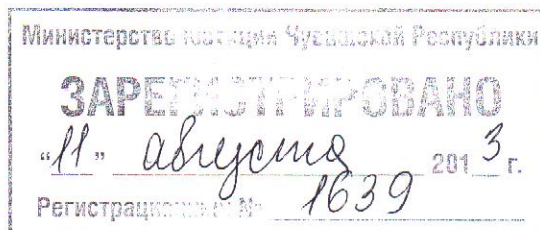 Министерство юстиции Чувашской Республики
ЗАРЕГИСТРИРОВАНО
"11" августа 2013 г.
Регистрационный № 1639